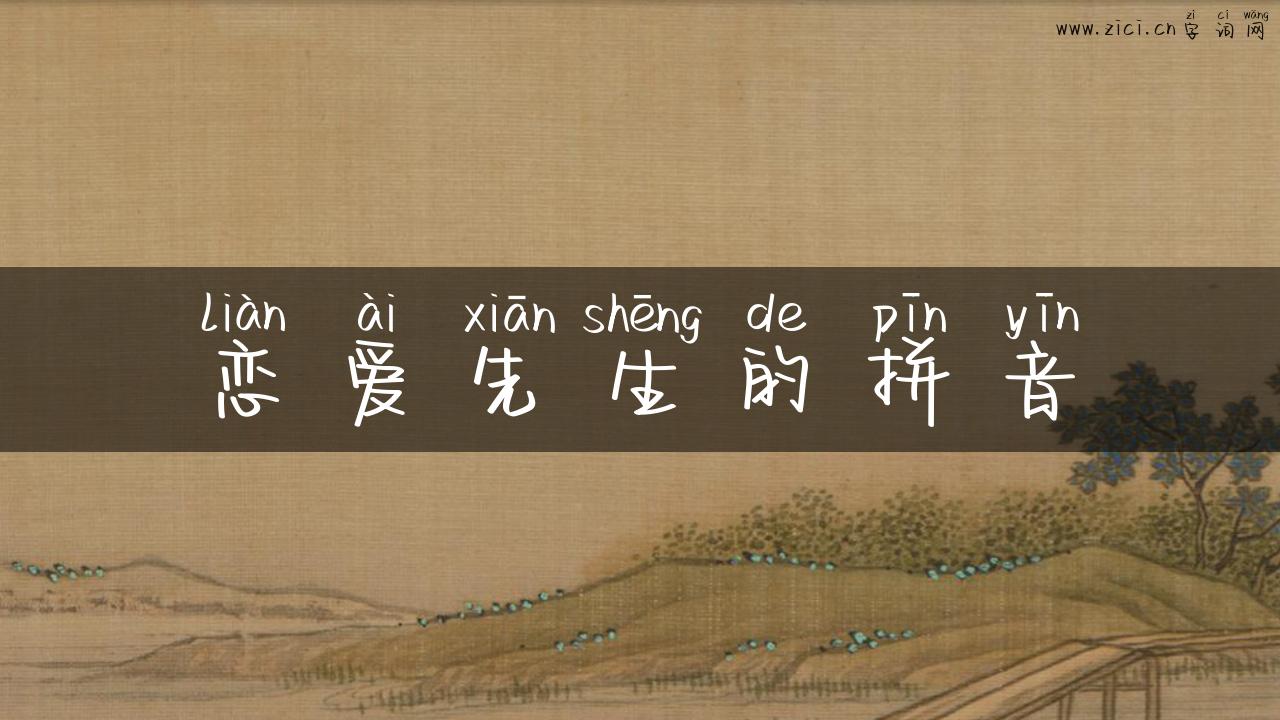 zì cí wǎng
www.zici.cn 字词网
liàn ài xiān shēng de pīn yīn
恋爱先生的拼音